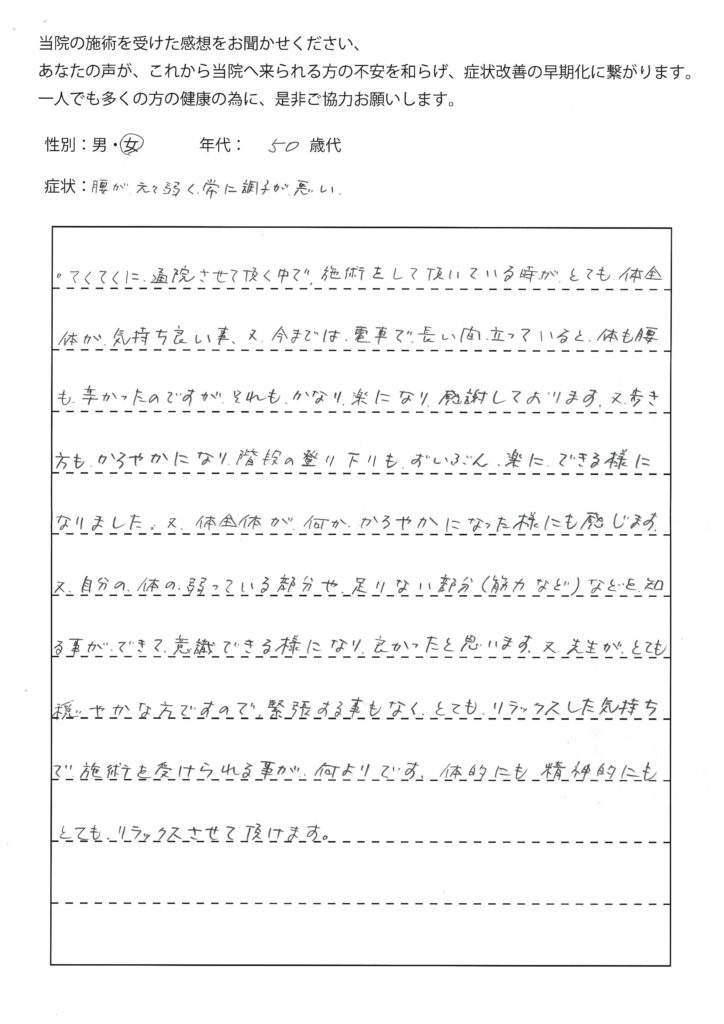 当院の施術を受けた感想をお聞かせください、
あなたの声が、これから当院へ来られる方の不安を和らげ、症状改善の早期化に繋がります。
一人でも多くの方の健康の為に、是非ご協力お願いします。
性別：男・女 年代： 50 歳代
症状：腰が 弱く、常に調子が、悪い、
。てくてくに、通院させて頂く中で、施術をして頂いている時が、とても、体全
体が、気持ち良い事、又、今までは、電車で、長い間、立っていると、体も腰
も、辛かったのですが、それも、かなり、楽になり、感謝しております。又、歩き
方も、かろやかになり、階段の登り下りも、ずいぶん、楽に、できる様に
なりました。又、体全体が、何か、かろやかになった様にも感じます。
又、自分の、体の、弱っている部分や、足りない部分（筋力など）などを、知
る事が、できて、意識できる様になり、良かったと思います。又、先生が、とても
穏やかな方ですので、緊張する事もなく、とても、リラックスした気持ち
で施術を受けられる事が、何よりです。体的にも精神的にも
とても、リラックスさせて頂けます。